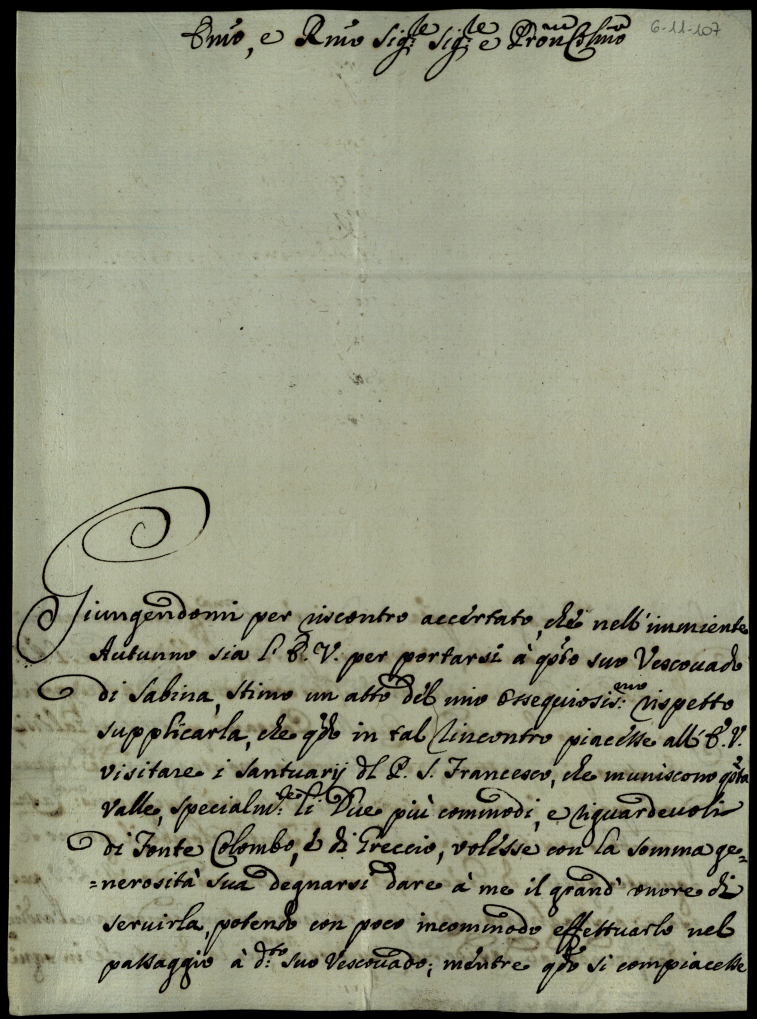 Emo, e Rmo Sig.re Sig.re e Pron Colmo
6-11-107
Giungendomi per riscontro accertato, che nell'imminente
Autunno sia l'E.V. per portarsi à qsto suo Vescovado
di Sabina, stimo un atto del mio ossequiosis.mo rispetto
supplicarla, che qdo in tal rincontro piacesse all'E.V.
visitare i Santuarij dl P. S. Francesco, che muniscono qsta
Valle, specialm.te li due più commodi, e riguardevoli
di Fonte Colombo, è di Greccio, volesse con la somma ge=
=nerosità sua degnarsi dare à me il grand'onore di
servirla, potendo con poco incommodo effettuarlo nel
passaggio à d.to suo Vescovado; mentre qdo si compiacesse